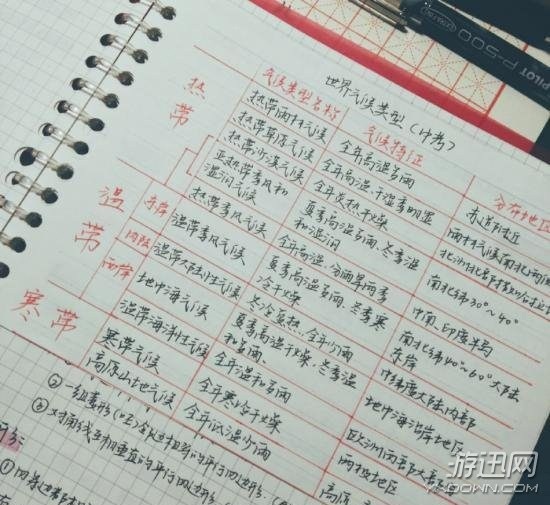 PILOT P-500
世界气候类型(中考)
气候类型名称 气候特征 分布地区
热带
热带雨林气候 全年高温多雨 赤道附近
热带草原气候 全年高温,干湿季明显 雨林气候南北两侧
热带沙漠气候 全年炎热干燥
亚热带季风和湿润气候 夏季高温多雨,冬季温和湿润 南北纬30°~40°
热带季风气候 全年高温,分雨旱两季 中南、印度半岛
温带
东岸 温带季风气候 夏季高温多雨,冬季寒冷干燥 南北纬40°~60°大陆东岸
内陆 温带大陆性气候 冬冷夏热,全年少雨 中纬度大陆内部
西岸 地中海气候 夏季高温干燥,冬季温和多雨 地中海沿岸地区
温带海洋性气候 全年温和多雨
寒带
寒带气候 全年寒冷干燥 两极地区
高原山地气候 全年低温少雨 高原
②一组
③对角线互相垂直的平行四边形
游迅网
YXDOWN.COM